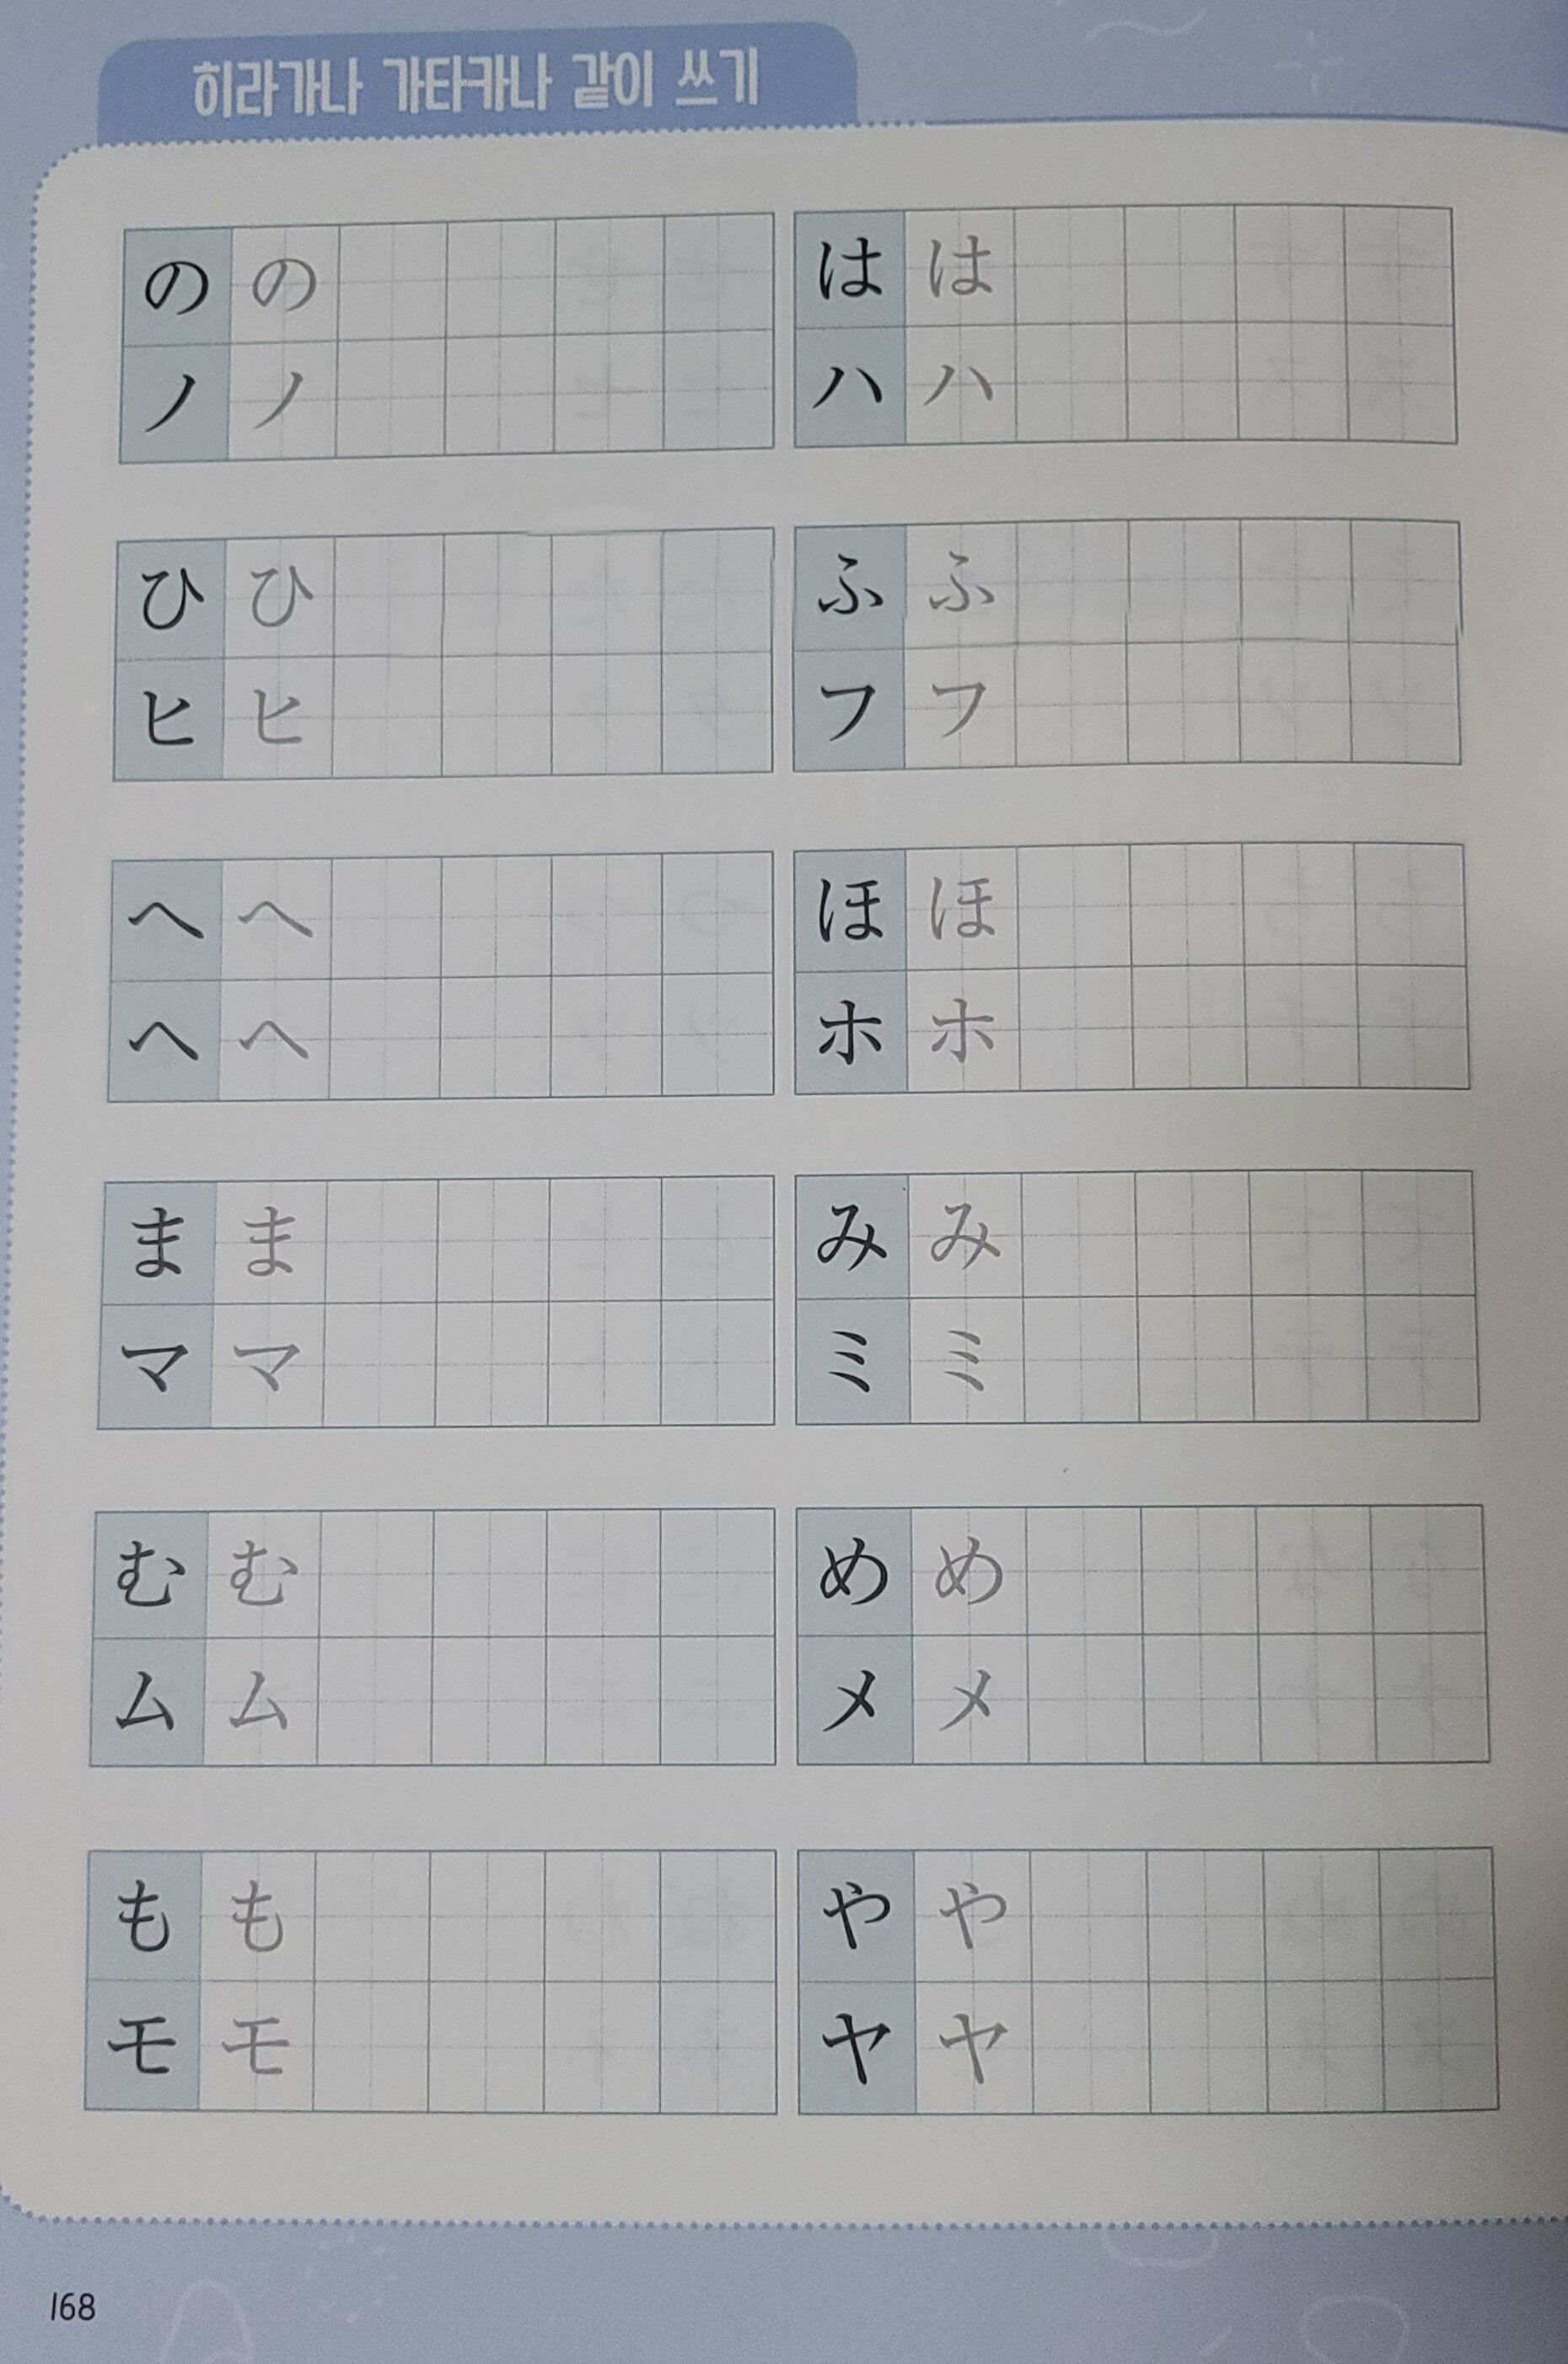 히라가나 가타카나 같이 쓰기
の の は は
ノ ノ ハ ハ
ひ ひ ふ ふ
ヒ ヒ フ フ
へ へ ほ ほ
ヘ ヘ ホ ホ
ま ま み み
マ マ ミ ミ
む む め め
ム ム メ メ
も も や や
モ モ ヤ ヤ
168